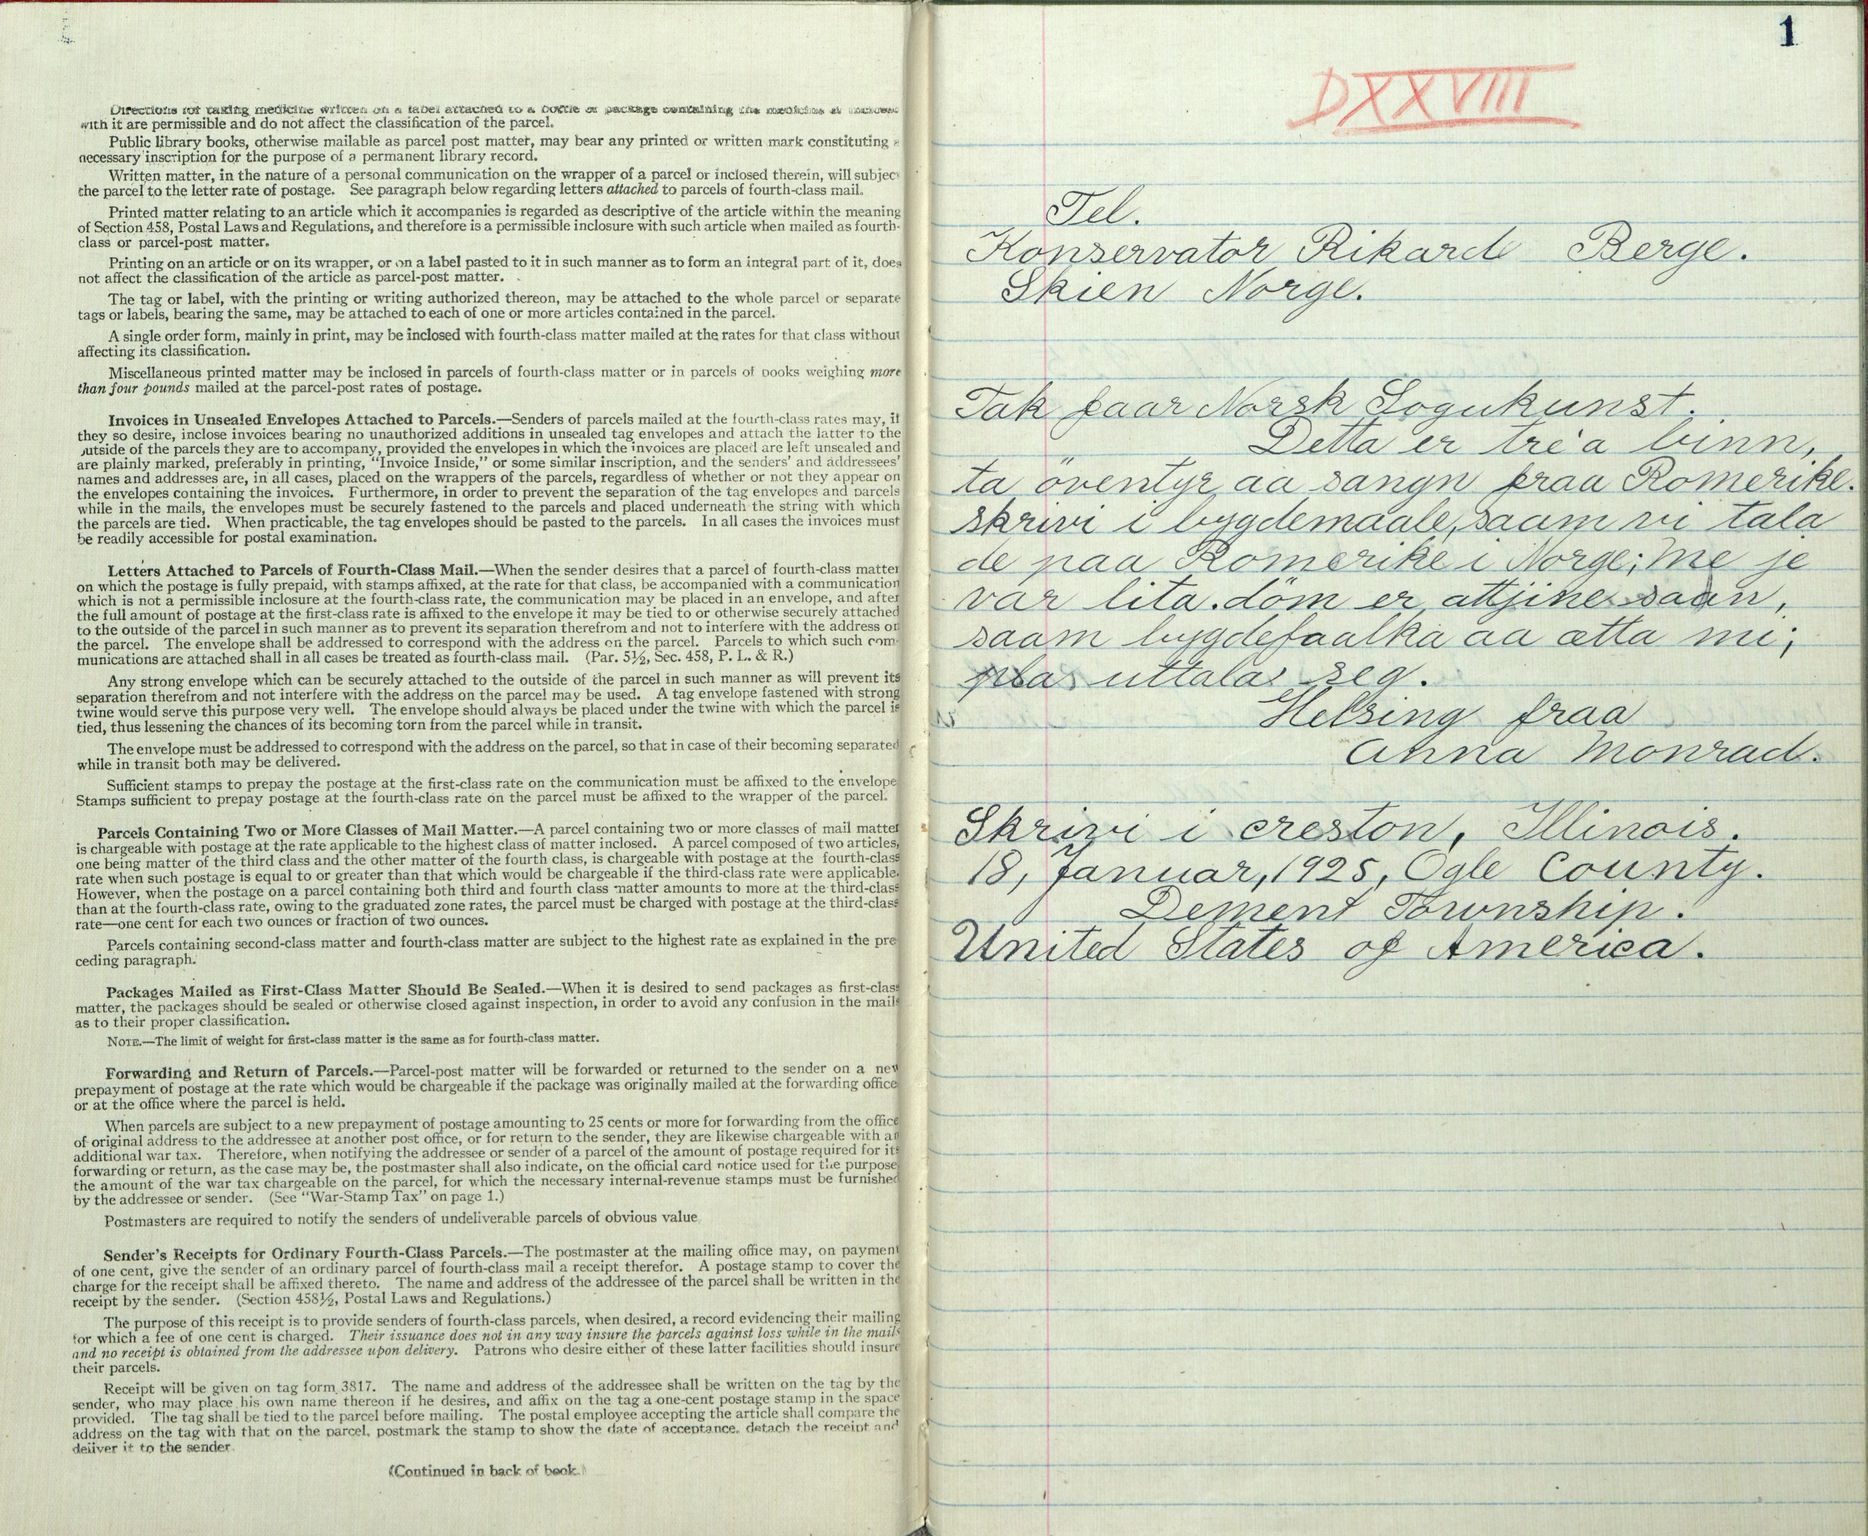 Directions for taking medicine written on a label attached to a bottle or package containing the medicine or inclosed
with it are permissible and do not affect the classification of the parcel.
Public library books, otherwise mailable as parcel post matter, may bear any printed or written mark constituting a
necessary inscription for the purpose of a permanent library record.
Written matter, in the nature of a personal communication on the wrapper of a parcel or inclosed therein, will subjec
the parcel to the letter rate of postage. See paragraph below regarding letters attached to parcels of fourth-class mail.
Printed matter relating to an article which it accompanies is regarded as descriptive of the article within the meaning
of Section 458, Postal Laws and Regulations, and therefore is a permissible inclosure with such article when mailed as fourth-
class or parcel-post matter.
Printing on an article or on its wrapper, or on a label pasted to it in such manner as to form an integral part of it, does
not affect the classification of the article as parcel-post matter.
The tag or label, with the printing or writing authorized thereon, may be attached to the whole parcel or separate
tags or labels, bearing the same, may be attached to each of one or more articles contained in the parcel.
A single order form, mainly in print, may be inclosed with fourth-class matter mailed at the rates for that class without
affecting its classification.
Miscellaneous printed matter may be inclosed in parcels of fourth-class matter or in parcels of books weighing more
than four pounds mailed at the parcel-post rates of postage.
Invoices in Unsealed Envelopes Attached to Parcels.—Senders of parcels mailed at the fourth-class rates may, if
they so desire, inclose invoices bearing no unauthorized additions in unsealed tag envelopes and attach the latter to the
outside of the parcels they are to accompany, provided the envelopes in which the invoices are placed are left unsealed and
are plainly marked, preferably in printing, "Invoice Inside," or some similar inscription, and the senders' and addressees'
names and addresses are, in all cases, placed on the wrappers of the parcels, regardless of whether or not they appear on
the envelopes containing the invoices. Furthermore, in order to prevent the separation of the tag envelopes and parcels
while in the mails, the envelopes must be securely fastened to the parcels and placed underneath the string with which
the parcels are tied. When practicable, the tag envelopes should be pasted to the parcels. In all cases the invoices must
be readily accessible for postal examination.
Letters Attached to Parcels of Fourth-Class Mail.—When the sender desires that a parcel of fourth-class matter
on which the postage is fully prepaid, with stamps affixed, at the rate for that class, be accompanied with a communication
which is not a permissible inclosure at the fourth-class rate, the communication may be placed in an envelope, and after
the full amount of postage at the first-class rate is affixed to the envelope it may be tied to or otherwise securely attached
to the outside of the parcel in such manner as to prevent its separation therefrom and not to interfere with the address on
the parcel. The envelope shall be addressed to correspond with the address on the parcel. Parcels to which such com-
munications are attached shall in all cases be treated as fourth-class mail. (Par. 5½, Sec. 458, P. L. & R.)
Any strong envelope which can be securely attached to the outside of the parcel in such manner as will prevent its
separation therefrom and not interfere with the address on the parcel may be used. A tag envelope fastened with strong
twine would serve this purpose very well. The envelope should always be placed under the twine with which the parcel is
tied, thus lessening the chances of its becoming torn from the parcel while in transit.
The envelope must be addressed to correspond with the address on the parcel, so that in case of their becoming separated
while in transit both may be delivered.
Sufficient stamps to prepay the postage at the first-class rate on the communication must be affixed to the envelope
Stamps sufficient to prepay postage at the fourth-class rate on the parcel must be affixed to the wrapper of the parcel.
Parcels Containing Two or More Classes of Mail Matter.—A parcel containing two or more classes of mail matter
is chargeable with postage at the rate applicable to the highest class of matter inclosed. A parcel composed of two articles,
one being matter of the third class and the other matter of the fourth class, is chargeable with postage at the fourth-class
rate when such postage is equal to or greater than that which would be chargeable if the third-class rate were applicable.
However, when the postage on a parcel containing both third and fourth class matter amounts to more at the third-class
than at the fourth-class rate, owing to the graduated zone rates, the parcel must be charged with postage at the third-class
rate—one cent for each two ounces or fraction of two ounces.
Parcels containing second-class matter and fourth-class matter are subject to the highest rate as explained in the pre
ceding paragraph.
Packages Mailed as First-Class Matter Should Be Sealed.—When it is desired to send packages as first-class
matter, the packages should be sealed or otherwise closed against inspection, in order to avoid any confusion in the mails
as to their proper classification.
NOTE.—The limit of weight for first-class matter is the same as for fourth-class matter.
Forwarding and Return of Parcels.—Parcel-post matter will be forwarded or returned to the sender on a new
prepayment of postage at the rate which would be chargeable if the package was originally mailed at the forwarding office
or at the office where the parcel is held.
When parcels are subject to a new prepayment of postage amounting to 25 cents or more for forwarding from the office
of original address to the addressee at another post office, or for return to the sender, they are likewise chargeable with an
additional war tax. Therefore, when notifying the addressee or sender of a parcel of the amount of postage required for its
forwarding or return, as the case may be, the postmaster shall also indicate, on the official card notice used for the purpose,
the amount of the war tax chargeable on the parcel, for which the necessary internal-revenue stamps must be furnished
by the addressee or sender. (See "War-Stamp Tax" on page 1.)
Postmasters are required to notify the senders of undeliverable parcels of obvious value
Sender's Receipts for Ordinary Fourth-Class Parcels.—The postmaster at the mailing office may, on payment
of one cent, give the sender of an ordinary parcel of fourth-class mail a receipt therefor. A postage stamp to cover the
charge for the receipt shall be affixed thereto. The name and address of the addressee of the parcel shall be written in the
receipt by the sender. (Section 458½, Postal Laws and Regulations.)
The purpose of this receipt is to provide senders of fourth-class parcels, when desired, a record evidencing their mailing
for which a fee of one cent is charged. Their issuance does not in any way insure the parcels against loss while in the mails
and no receipt is obtained from the addressee upon delivery. Patrons who desire either of these latter facilities should insure
their parcels.
Receipt will be given on tag form 3817. The name and address of the addressee shall be written on the tag by the
sender, who may place his own name thereon if he desires, and affix on the tag a one-cent postage stamp in the space
provided. The tag shall be tied to the parcel before mailing. The postal employee accepting the article shall compare the
address on the tag with that on the parcel, postmark the stamp to show the date of acceptance, detach the receipt and
deliver it to the sender.
(Continued in back of book.)
1
DXXVIII
Tel.
Konservator Rikard Berge.
Skien Norge.
Tak faar Norsk Sogukunst.
Detta er tre'a binn,
ta öventyr aa sangn fraa Romerike.
skrivi i bygdemaale, saam vi tala
de paa Romerike i Norge; me je
var lita. döm er attjine saan,
saam bygdefaalka aa ætta mi;
uttala seg.
Helsing fraa
Anna Monrad.
Skrivi i Creston, Illinois.
18, Januar, 1925, Ogle County.
Dement Township.
United States of America.